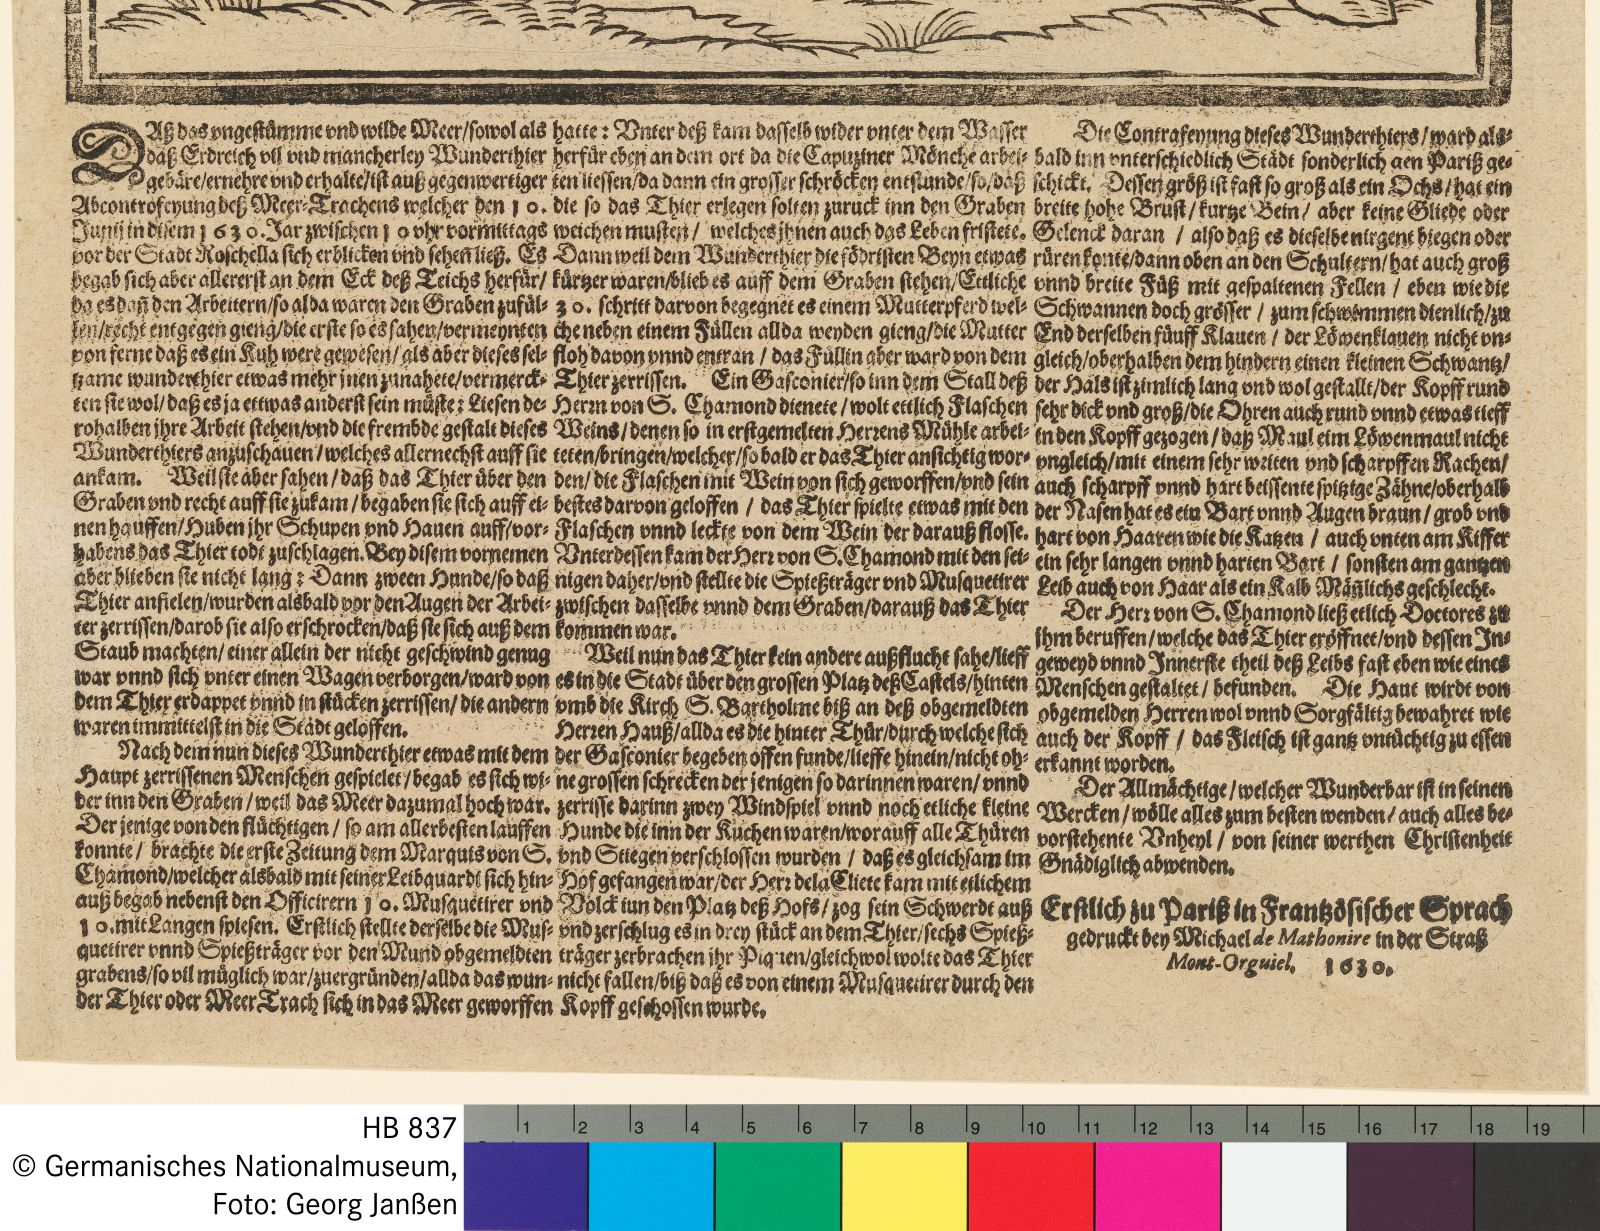 DAß das vngestümme vnd wilde Meer/sowol als
daß Erdreich vil vnd mancherley Wunderthier
gebäre/ernehre vnd erhalte/ist auß gegenwertiger
Abcontrofenung deß Meer-Trachens welcher den 10.
Junij in disem 1630. Jar zwischen 10 vhr vormittags
vor der Stadt Roschella sich erblicken vnd sehen ließ. Es
begab sich aber allererst an dem Eck deß Teichs herfür/
da es dañ den Arbeitern/so alda waren den Graben zufül-
len/recht entgegen gieng/die erste so es sahen/vermeynten
von ferne daß es ein Kuh were gewesen/als aber dieses sel-
tzame wunderthier etwas mehr jnen zunahete/vermerck-
ten sie wol/daß es ja ettwas anderst sein müste: Liesen de-
rohalben jhre Arbeit stehen/vnd die frembde gestalt dieses
Wunderthiers anzuschauen/welches allernechst auff sie
ankam. Weil sie aber sahen/daß das Thier über den
Graben vnd recht auff sie zukam/begaben sie sich auff ei-
nen hauffen/Huben jhr Schupen vnd Hauen auff/vor-
habens das Thier todt zuschlagen. Bey disem vornemen
aber blieben sie nicht lang: Dann zween Hunde/so daß
Thier anfielen/wurden alsbald vor den Augen der Arbei-
ter zerrissen/darob sie also erschrocken/daß sie sich auß dem
Staub machten/einer allein der nicht geschwind genug
war vnnd sich vnter einen Wagen verborgen/ward von
dem Thier erdappet vnnd in stücken zerrissen/die andern
waren immittelst in die Stadt geloffen.
Nach dem nun dieses Wunderthier etwas mit dem
Haupt zerrissenen Menschen gespielet/begab es sich wi-
der inn den Graben/weil das Meer dazumal hoch war.
Der jenige von den flüchtigen/so am allerbesten lauffen
konnte/brachte die erste Zeitung dem Marquis von S.
Chamond/welcher alsbald mit seiner Leibquardi sich hin-
auß begab nebenst den Officirern 10. Musquetirer vnd
10. mit Langen spiesen. Erstlich stellte derselbe die Mus-
quetirer vnnd Spießträger vor den Mund obgemeldten
grabens/so vil müglich war/zuergründen/allda das wun-
der Thier oder Meer Trach sich in das Meer geworffen
hatte: Vnter deß kam dasselb wider vnter dem Wasser
herfür eben an dem ort da die Capuziner Mönche arbei-
ten liessen/da dann ein grosser schröcken entstunde/so/daß
die so das Thier erlegen solten zuruck inn den Graben
weichen musten/welches jhnen auch das Leben fristete.
Dann weil dem Wunderthier die födristen Beyn etwas
kürtzer waren/blieb es auff dem Graben stehen/Ettliche
30. schritt darvon begegnet es einem Mutterpferd wel-
che neben einem Füllen allda weyden gieng/die Mutter
floh davon vnnd entran/das Füllin aber ward von dem
Thier zerrissen. Ein Gasconier/so inn dem Stall deß
Herrn von S. Chamond dienete/wolt ettlich Flaschen
Weins/denen so in erstgemelten Herrens Mühle arbei-
teten/bringen/welcher/so bald er das Thier ansichtig wor-
den/die Flaschen mit Wein von sich geworffen/vnd sein
bestes darvon geloffen/das Thier spielte etwas mit den
Flaschen vnnd leckte von dem Wein der darauß flosse.
Vnterdessen kam der Herr von S. Chamond mit den sei-
nigen daher/vnd stellte die Spießträger vnd Musquetirer
zwischen dasselbe vnnd dem Graben/darauß das Thier
kommen war.
Weil nun das Thier kein andere außflucht sahe/lieff
es in die Stadt über den grossen Platz deß Castels/hinten
vmb die Kirch S. Bartholme biß an deß obgemeldten
Herren Hauß/allda es die hinter Thür/durch welche sich
der Gasconier begeben offen funde/lieffe hinein/nicht oh-
ne grossen schrecken der jenigen so darinnen waren/vnnd
zerrisse darinn zwey Windspiel vnnd noch etliche kleine
Hunde die inn der Kuchen waren/worauff alle Thüren
vnd Stiegen verschlossen wurden/daß es gleichsam im
Hof gefangen war/der Herr dela Cliete kam mit etlichem
Volck iun den Platz deß Hofs/zog sein Schwerdt auß
vnd zerschlug es in drey stück an dem Thier/sechs Spieß-
träger zerbrachen jhr Piquen/gleichwol wolte das Thier
nicht fallen/biß daß es von einem Musquetirer durch den
Kopff geschossen wurde.
Die Contrafenung dieses Wunderthiers/ward als-
bald inn vnterschiedlich Städt sonderlich gen Pariß ge-
schickt. Dessen größ ist fast so groß als ein Ochs/hat ein
breite hohe Brust/kurtze Bein/aber keine Gliede oder
Gelenck daran/also daß es dieselbe nirgent biegen oder
rüren konte/dann oben an den Schultern/hat auch groß
vnnd breite Füß mit gespaltenen Fellen/eben wie die
Schwannen doch grösser/zum schwemmen dienlich/zu
End derselben fünff Klauen/der Löwenklauen nicht vn-
gleich/oberhalben dem hindern einen kleinen Schwantz/
der Hals ist zimlich lang vnd wol gestallt/der Kopff rund
sehr dick vnd groß/die Ohren auch rund vnnd etwas tieff
in den Kopff gezogen/daß Maul eim Löwenmaul nicht
vngleich/mit einem sehr weiten vnd scharpffen Rachen/
auch scharpff vnnd hart beissente spitzige Zähne/oberhalb
der Nasen hat es ein Bart vnnd Augen braun/grob vnd
hart von Haaren wie die Katzen/auch vnten am Kiffer
ein sehr langen vnnd harten Bart/sonsten am gantzen
Leib auch von Haar als ein Kalb Mäñlichs geschlecht.
Der Herr von S. Chamond ließ etlich Doctores zu
ihm beruffen/welche das Thier eröffnet/vnd dessen In-
geweyd vnnd Innerste theil deß Leibs fast eben wie eines
Menschen gestaltet/befunden. Die Haut wirdt von
obgemelden Herren wol vnnd Sorgfältig bewahret wie
auch der Kopff/das Fleisch ist gantz vntüchtig zu essen
erkannt worden.
Der Allmächtige/welcher Wunderbar ist in seinen
Wercken/wölle alles zum besten wenden/auch alles be-
vorstehente Vnheyl/von seiner werthen Christenheit
Gnädiglich abwenden.
Erstlich zu Pariß in Frantzösischer Sprach
gedruckt bey Michael de Mathonire in der Straß
Mont-Orguiel. 1630.
HB 837
© Germanisches Nationalmuseum,
Foto: Georg Janßen
1 2 3 4 5 6 7 8 9 10 11 12 13 14 15 16 17 18 19